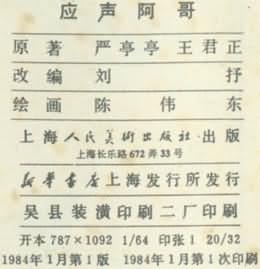 应声阿哥
原著 严亭亭 王君正
改编 刘抒
绘画 陈伟东
上海人民美術出版社·出版
上海长乐路672弄33号
新华書店上海发行所发行
吴县装潢印刷二厂印刷
开本787×1092 1/64 印张1 20/32
1984年1月第1版 1984年1月第1次印刷